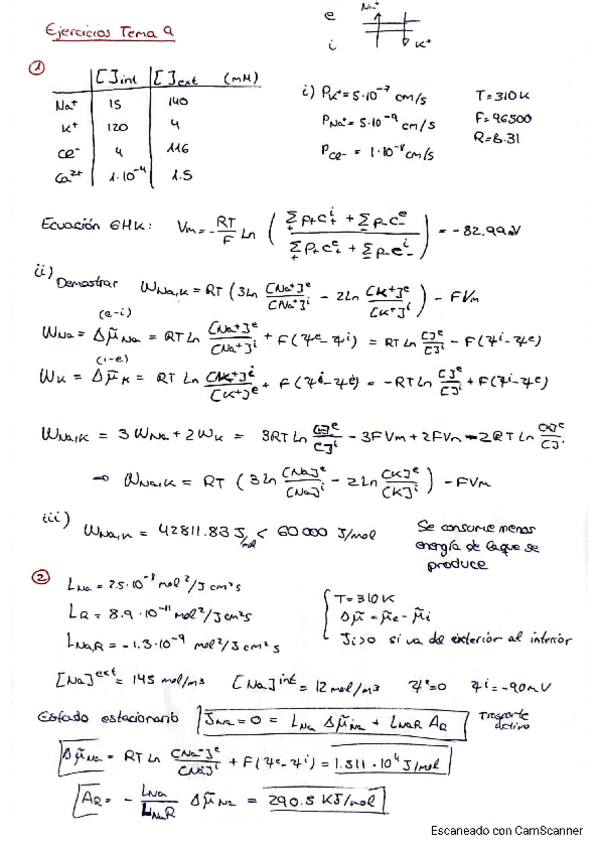 Ejercicios Tema 9
e Na⁺
i K⁺
① []int []ext (mM)
Na⁺ 15 140
K⁺ 120 4
Cl⁻ 4 116
Ca²⁺ 1·10⁻⁴ 1.5
i) P_K⁺ = 5·10⁻⁷ cm/s T=310K
P_Na⁺ = 5·10⁻⁹ cm/s F=96500
P_Cl⁻ = 1·10⁻⁸ cm/s R=8.31
Ecuación GHK: Vm = -RT/F Ln ( (Σ₊ P₊C₊ⁱ + Σ₋ P₋C₋ᵉ) / (Σ₊ P₊C₊ᵉ + Σ₋ P₋C₋ⁱ) ) = -82.99mV
ii) Demostrar W_Na,K = RT (3Ln [Na⁺]ᵉ/[Na⁺]ⁱ - 2Ln [K⁺]ᵉ/[K⁺]ⁱ) - FVm
(e-i)
W_Na = Δμ̃_Na = RT Ln [Na⁺]ᵉ/[Na⁺]ⁱ + F(Ψᵉ-Ψⁱ) = RT Ln []ᵉ/[]ⁱ - F(Ψⁱ-Ψᵉ)
(i-e)
W_K = Δμ̃_K = RT Ln [K⁺]ⁱ/[K⁺]ᵉ + F(Ψⁱ-Ψᵉ) = -RT Ln []ᵉ/[]ⁱ + F(Ψⁱ-Ψᵉ)
W_Na,K = 3W_Na + 2W_K = 3RT Ln []ᵉ/[]ⁱ - 3FVm + 2FVm - 2RT Ln []ᵉ/[]ⁱ
→ W_Na,K = RT (3Ln [Na]ᵉ/[Na]ⁱ - 2Ln [K]ᵉ/[K]ⁱ) - FVm
iii) W_Na,K = 42811.83 J/mol < 60000 J/mol
Se consume menos
energía de la que se
produce
② L_Na = 2.5·10⁻⁸ mol²/J cm²s
L_R = 8.9·10⁻¹¹ mol²/J cm²s
L_NaR = -1.3·10⁻⁹ mol²/J cm²s
T=310K
Δμ̃ = μ̃e - μ̃i
Ji>0 si va del exterior al interior
[Na]ext = 145 mol/m3 [Na]int = 12 mol/m3 Ψe=0 Ψi=-90mV
Estado estacionario J_Na = 0 = L_Na Δμ̃_Na + L_NaR A_R Trasporte activo
Δμ̃_Na = RT Ln [Na⁺]ᵉ/[Na]ⁱ + F(Ψᵉ-Ψⁱ) = 1.511·10⁴ J/mol
A_R = - L_Na/L_NaR Δμ̃_Na = 290.5 KJ/mol
Escaneado con CamScanner